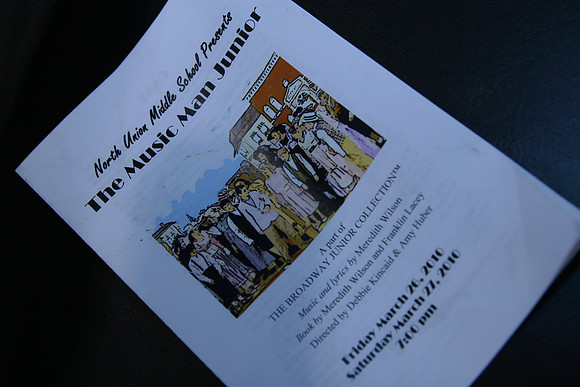 North Union Middle School Presents
The Music Man Junior
A part of
THE BROADWAY JUNIOR COLLECTION™
Music and lyrics by Meredith Wilson
Book by Meredith Wilson and Franklin Lacey
Directed by Debbie Kincaid & Amy Huber
Friday March 26, 2010
Saturday March 27, 2010
7:00 pm